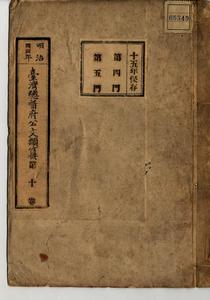 65349
十五年保存
第四門
第五門
明治
四四年
臺灣總督府公文類纂 第十卷